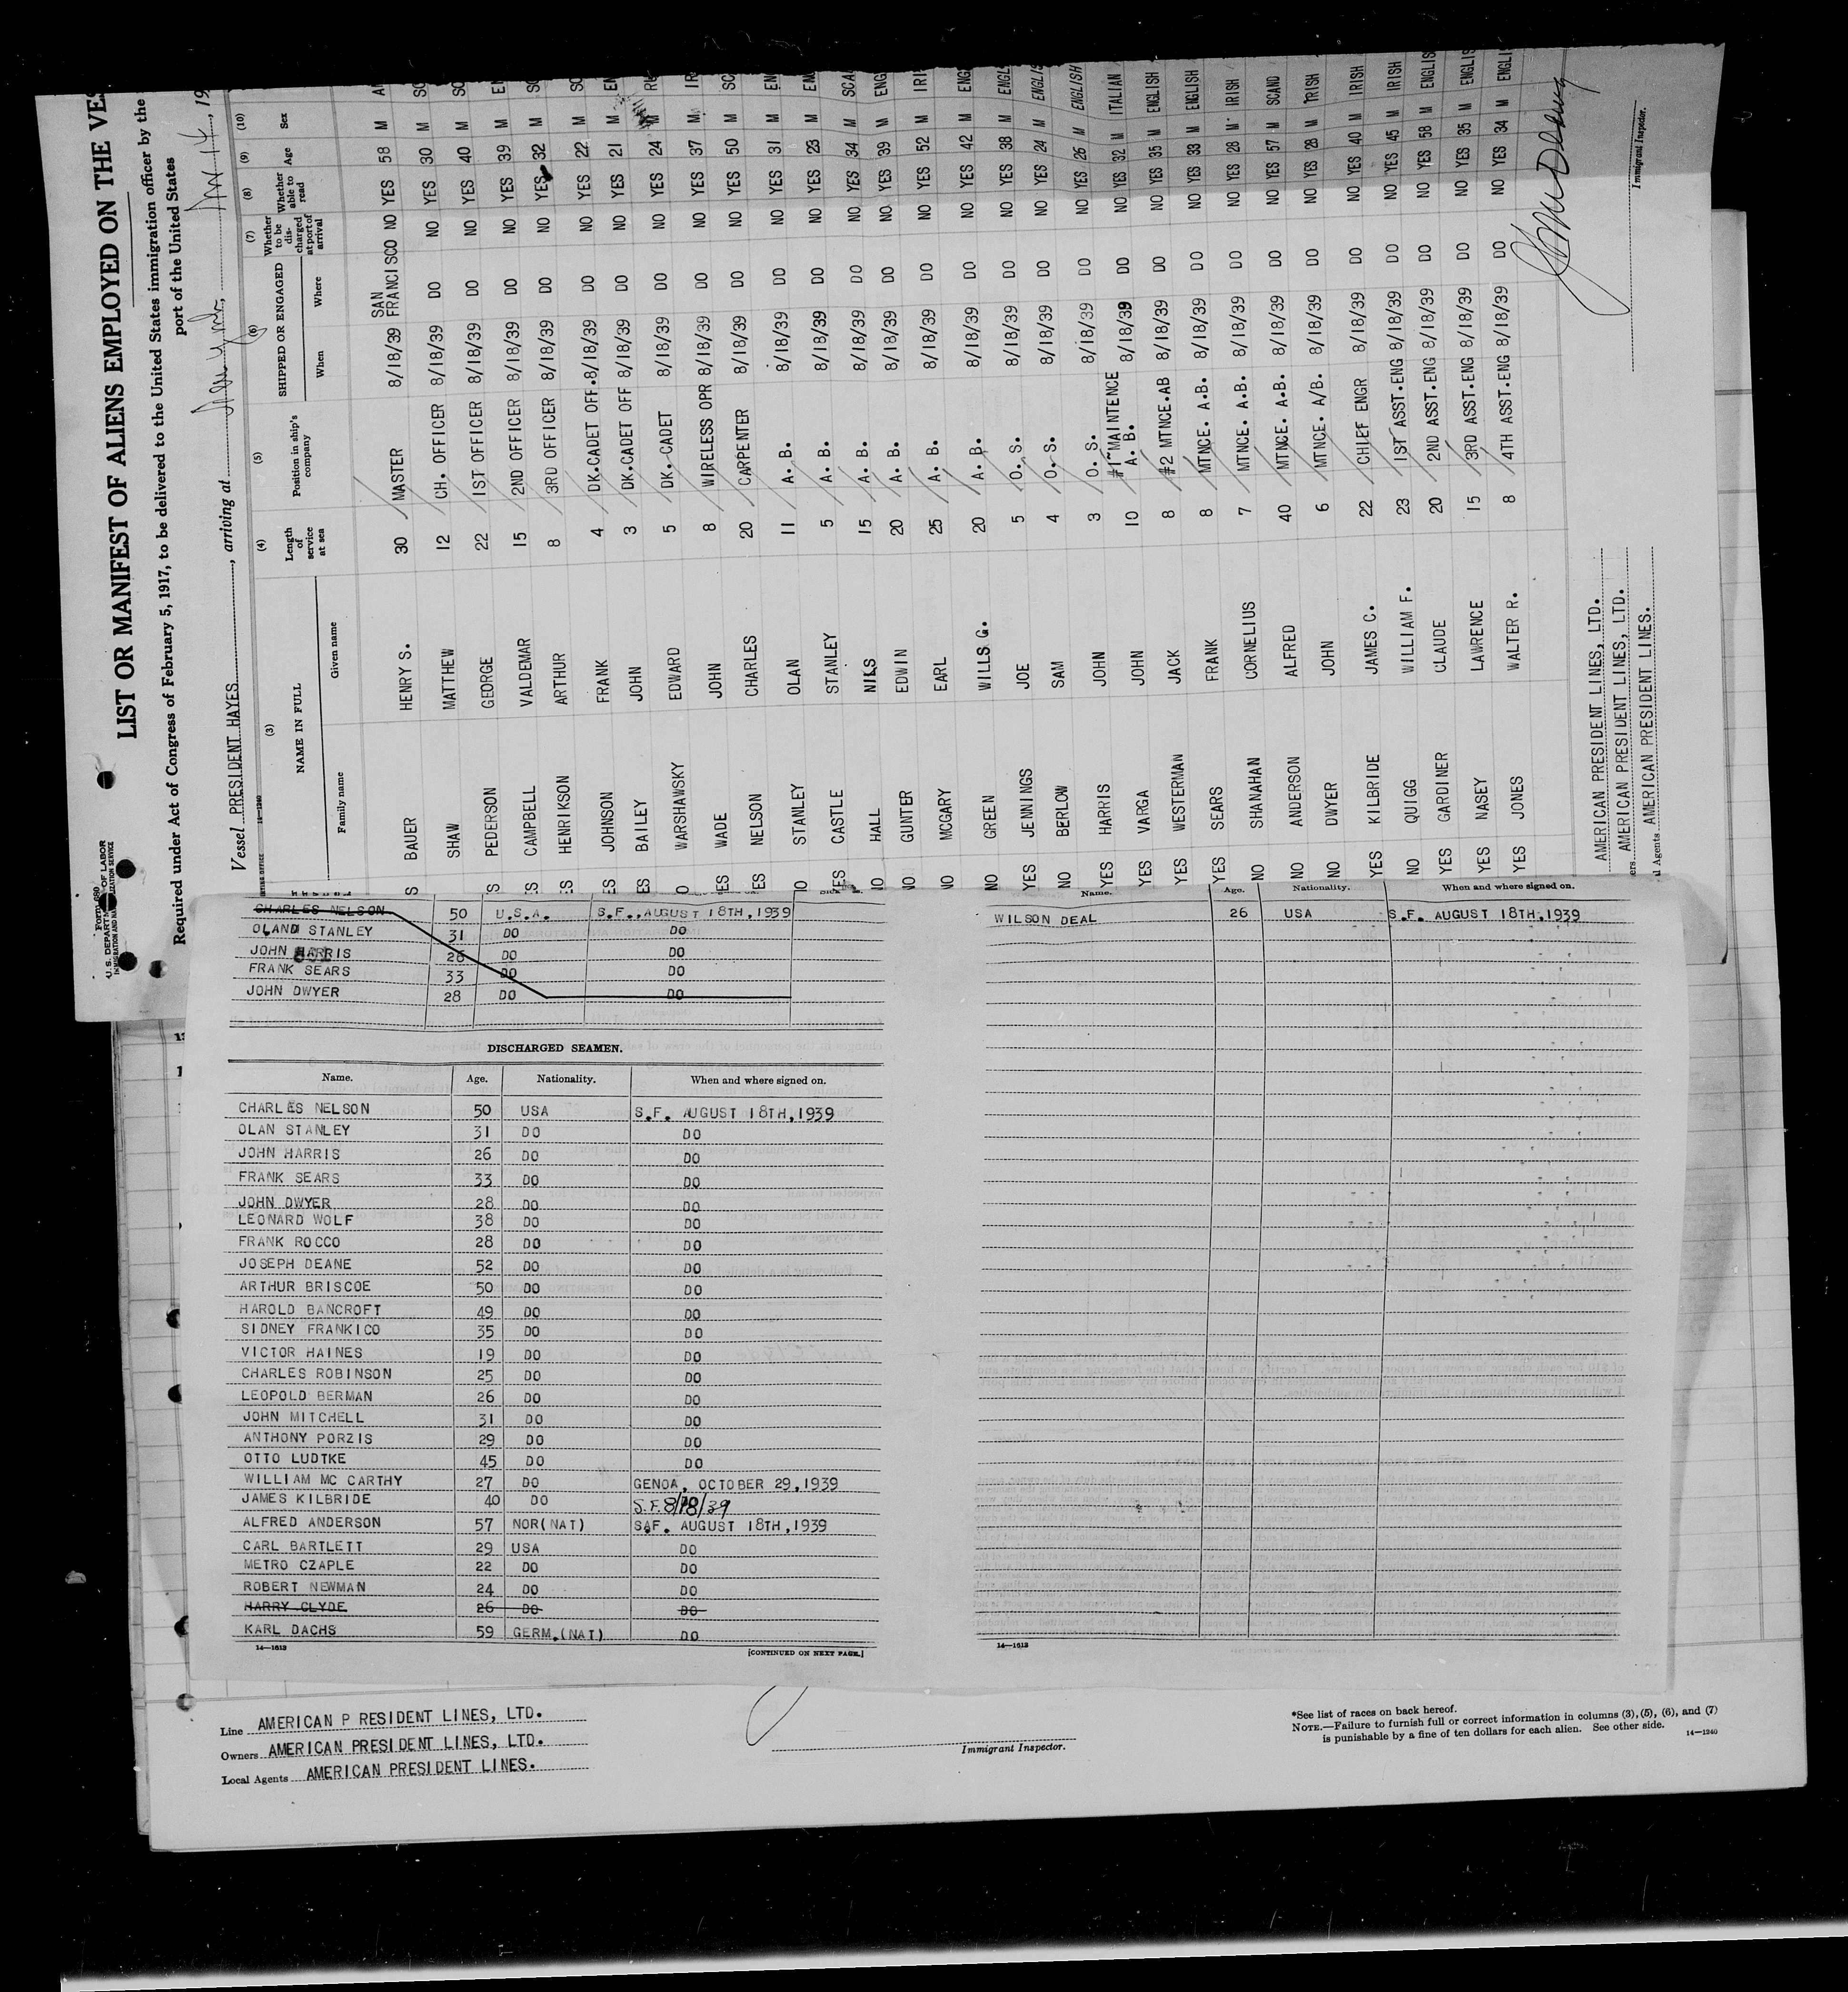 Form 680
U.S. DEPARTMENT OF LABOR
IMMIGRATION AND NATURALIZATION SERVICE
LIST OR MANIFEST OF ALIENS EMPLOYED ON THE VES
Required under Act of Congress of February 5, 1917, to be delivered to the United States immigration officer by the
port of the United States
Vessel PRESIDENT HAYES, arriving at
(3) (4) (5) (6) (7) (8) (9) (10)
NAME IN FULL Length of service at sea Position in ship's company SHIPPED OR ENGAGED Whether to be discharged at port of arrival Whether able to read Age Sex
Family name Given name When Where
BAUER HENRY S. 30 MASTER 8/18/39 SAN FRANCISCO NO YES 58 M
SHAW MATTHEW 12 CH. OFFICER 8/18/39 DO NO YES 30 M
PEDERSON GEORGE 22 1ST OFFICER 8/18/39 DO NO YES 40 M
CAMPBELL VALDEMAR 15 2ND OFFICER 8/18/39 DO NO YES 39 M
HENRIKSON ARTHUR 8 3RD OFFICER 8/18/39 DO NO YES 32 M
JOHNSON FRANK 4 DK.CADET OFF. 8/18/39 DO NO YES 22 M
BAILEY JOHN 3 DK.CADET OFF 8/18/39 DO NO YES 21 M
WARSHAWSKY EDWARD 5 DK. CADET 8/18/39 DO NO YES 24 M
WADE JOHN 8 WIRELESS OPR 8/18/39 DO NO YES 37 M
NELSON CHARLES 20 CARPENTER 8/18/39 DO NO YES 50 M
STANLEY OLAN 11 A. B. 8/18/39 DO NO YES 31 M
CASTLE STANLEY 5 A. B. 8/18/39 DO NO YES 23 M
HALL NILS 15 A. B. 8/18/39 DO NO YES 34 M
GUNTER EDWIN 20 A. B. 8/18/39 DO NO YES 39 M
MCGARY EARL 25 A. B. 8/18/39 DO NO YES 52 M
NO GREEN WILLS G. 20 A. B. 8/18/39 DO NO YES 42 M
YES JENNINGS JOE 5 O. S. 8/18/39 DO NO YES 38 M
NO BERLOW SAM 4 O. S. 8/18/39 DO NO YES 24 M ENGLISH
YES HARRIS JOHN 3 O. S. 8/18/39 DO NO YES 26 M ENGLISH
YES VARGA JOHN 10 #1 MAINTENCE A. B. 8/18/39 DO NO YES 32 M ITALIAN
YES WESTERMAN JACK 8 #2 MTNCE.AB 8/18/39 DO NO YES 35 M ENGLISH
YES SEARS FRANK 8 MTNCE. A.B. 8/18/39 DO NO YES 33 M ENGLISH
NO SHANAHAN CORNELIUS 7 MTNCE. A.B. 8/18/39 DO NO YES 28 M IRISH
NO ANDERSON ALFRED 40 MTNCE. A.B. 8/18/39 DO NO YES 57 M SCAND
NO DWYER JOHN 6 MTNCE. A/B. 8/18/39 DO NO YES 28 M IRISH
YES KILBRIDE JAMES C. 22 CHIEF ENGR 8/18/39 DO NO YES 40 M IRISH
NO QUIGG WILLIAM F. 23 1ST ASST.ENG 8/18/39 DO NO YES 45 M IRISH
YES GARDINER CLAUDE 20 2ND ASST.ENG 8/18/39 DO NO YES 58 M ENGLIS
YES NASEY LAWRENCE 15 3RD ASST.ENG 8/18/39 DO NO YES 35 M ENGLIS
YES JONES WALTER R. 8 4TH ASST.ENG 8/18/39 DO NO YES 34 M ENGLI
AMERICAN PRESIDENT LINES, LTD.
AMERICAN PRESIDENT LINES, LTD.
Agents AMERICAN PRESIDENT LINES.
Immigrant Inspector.
CHARLES NELSON 50 U.S.A. S.F., AUGUST 18TH, 1939
OLAND STANLEY 31 DO DO
JOHN HARRIS 26 DO DO
FRANK SEARS 33 DO DO
JOHN DWYER 28 DO DO
DISCHARGED SEAMEN.
Name. Age. Nationality. When and where signed on.
CHARLES NELSON 50 USA S.F. AUGUST 18TH, 1939
OLAN STANLEY 31 DO DO
JOHN HARRIS 26 DO DO
FRANK SEARS 33 DO DO
JOHN DWYER 28 DO DO
LEONARD WOLF 38 DO DO
FRANK ROCCO 28 DO DO
JOSEPH DEANE 52 DO DO
ARTHUR BRISCOE 50 DO DO
HAROLD BANCROFT 49 DO DO
SIDNEY FRANKICO 35 DO DO
VICTOR HAINES 19 DO DO
CHARLES ROBINSON 25 DO DO
LEOPOLD BERMAN 26 DO DO
JOHN MITCHELL 31 DO DO
ANTHONY PORZIS 29 DO DO
OTTO LUDTKE 45 DO DO
WILLIAM MC CARTHY 27 DO GENOA, OCTOBER 29, 1939
JAMES KILBRIDE 40 DO S.F. 8/18/39
ALFRED ANDERSON 57 NOR(NAT) S.F. AUGUST 18TH, 1939
CARL BARTLETT 29 USA DO
METRO CZAPLE 22 DO DO
ROBERT NEWMAN 24 DO DO
HARRY CLYDE 26 DO DO
KARL DACHS 59 GERM.(NAT) DO
14—1613 [CONTINUED ON NEXT PAGE.]
Name. Age. Nationality. When and where signed on.
WILSON DEAL 26 USA S.F. AUGUST 18TH, 1939
14—1613
Line AMERICAN P RESIDENT LINES, LTD.
Owners AMERICAN PRESIDENT LINES, LTD.
Local Agents AMERICAN PRESIDENT LINES.
Immigrant Inspector.
*See list of races on back hereof.
NOTE.—Failure to furnish full or correct information in columns (3), (5), (6), and (7)
is punishable by a fine of ten dollars for each alien. See other side. 14—1240